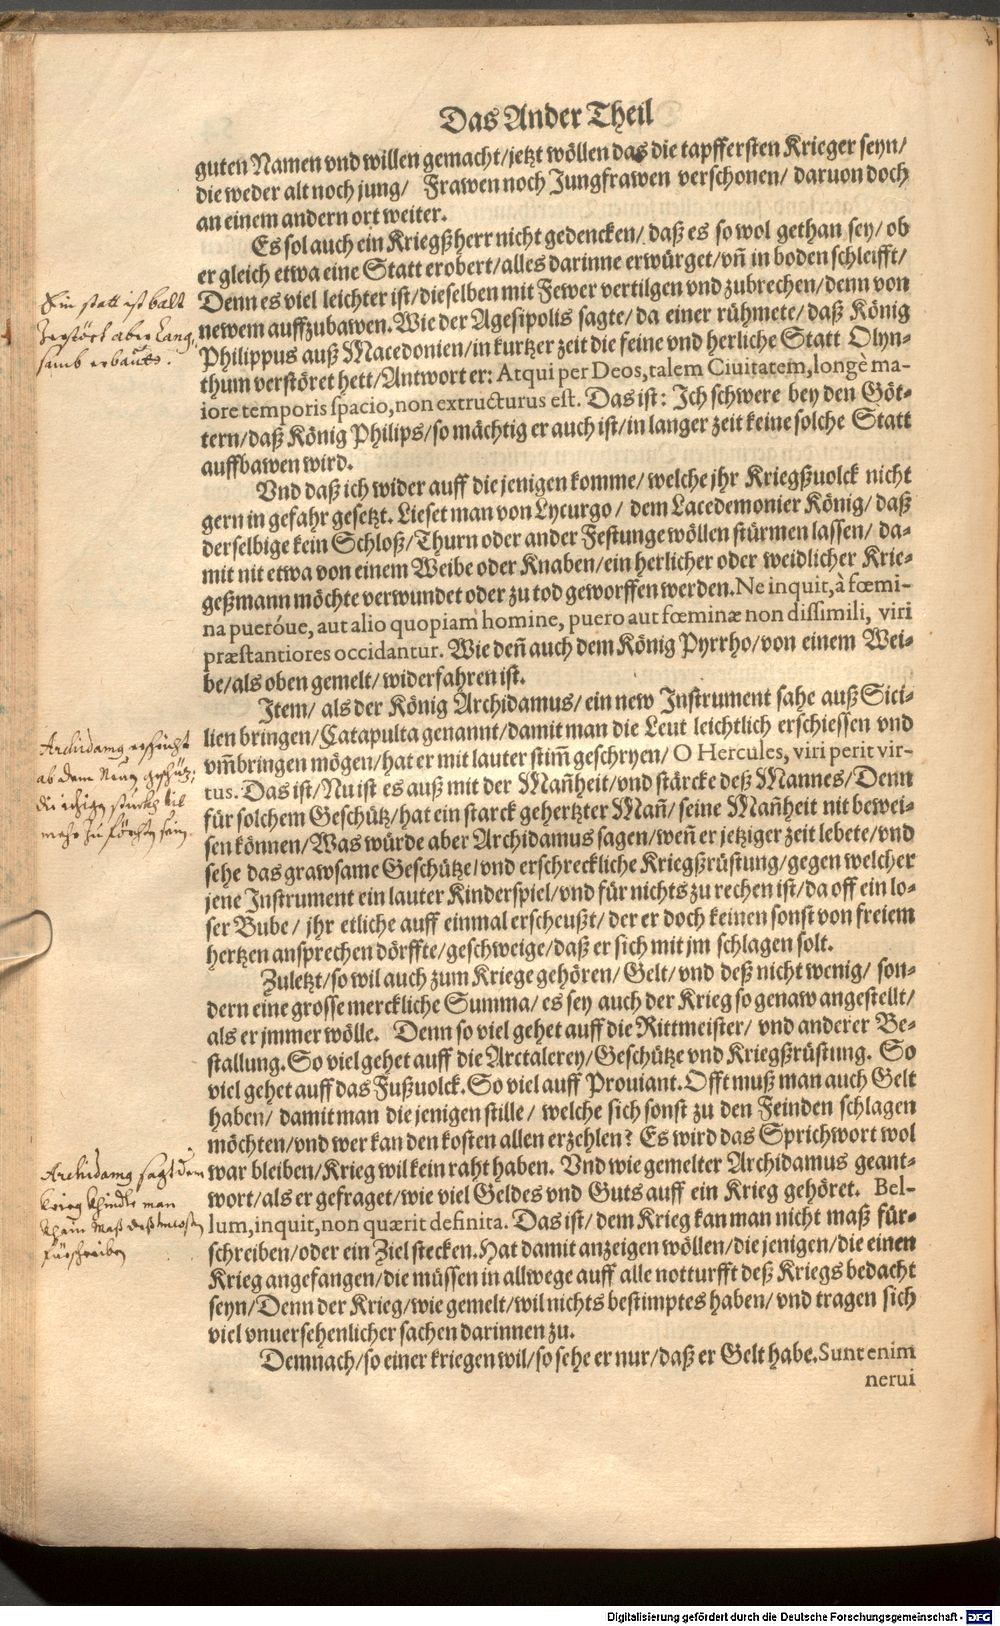 Das Ander Theil
guten Namen vnd willen gemacht/jetzt wöllen das die tapffersten Krieger seyn/
die weder alt noch jung/ Frawen noch Jungfrawen verschonen/ daruon doch
an einem andern ort weiter.
Es sol auch ein Kriegßherr nicht gedencken/ daß es so wol gethan sey/ ob
er gleich etwa eine Statt erobert/alles darinne erwürget/vñ in boden schleifft/
Denn es viel leichter ist/dieselben mit Fewer vertilgen vnd zubrechen/denn von
newem auffzubawen. Wie der Agesipolis sagte/ da einer rühmete/ daß König
Philippus auß Macedonien/in kurtzer zeit die feine vnd herliche Statt Olyn-
thum verstöret hett/Antwort er: Atqui per Deos, talem Ciuitatem, longè ma-
iore temporis spacio, non extructurus est. Das ist: Ich schwere bey den Göt-
tern/daß König Philips/so mächtig er auch ist/in langer zeit keine solche Statt
auffbawen wird.
Vnd daß ich wider auff die jenigen komme/ welche jhr Kriegßuolck nicht
gern in gefahr gesetzt. Lieset man von Lycurgo/ dem Lacedemonier König/ daß
derselbige kein Schloß/Thurn oder ander Festunge wöllen stürmen lassen/ da-
mit nit etwa von einem Weibe oder Knaben/ein herlicher oder weidlicher Krie-
geßmann möchte verwundet oder zu tod geworffen werden. Ne inquit, à fœmi-
na pueróue, aut alio quopiam homine, puero aut fœminæ non dissimili, viri
præstantiores occidantur. Wie deñ auch dem König Pyrrho/von einem Wei-
be/als oben gemelt/widerfahren ist.
Item/ als der König Archidamus/ ein new Instrument sahe auß Sici-
lien bringen/Catapulta genannt/damit man die Leut leichtlich erschiessen vnd
vm̃bringen mögen/hat er mit lauter stim̃ geschryen/ O Hercules, viri perit vir-
tus. Das ist/Nu ist es auß mit der Mañheit/vnd stärcke deß Mannes/Denn
für solchem Geschütz/hat ein starck gehertzter Mañ/ seine Mañheit nit bewei-
sen können/Was würde aber Archidamus sagen/weñ er jetziger zeit lebete/vnd
sehe das grawsame Geschütze/vnd erschreckliche Kriegßrüstung/gegen welcher
jene Instrument ein lauter Kinderspiel/vnd für nichts zu rechen ist/da off ein lo-
ser Bube/ jhr etliche auff einmal erscheußt/ der er doch keinen sonst von freiem
hertzen ansprechen dörffte/geschweige/daß er sich mit jm schlagen solt.
Zuletzt/so wil auch zum Kriege gehören/ Gelt/ vnd deß nicht wenig/ son-
dern eine grosse merckliche Summa/ es sey auch der Krieg so genaw angestellt/
als er jmmer wölle. Denn so viel gehet auff die Rittmeister/ vnd anderer Be-
stallung. So viel gehet auff die Arctalerey/Geschütze vnd Kriegßrüstung. So
viel gehet auff das Fußuolck. So viel auff Prouiant. Offt muß man auch Gelt
haben/ damit man die jenigen stille/ welche sich sonst zu den Feinden schlagen
möchten/vnd wer kan den kosten allen erzehlen? Es wird das Sprichwort wol
war bleiben/Krieg wil kein raht haben. Vnd wie gemelter Archidamus geant-
wort/als er gefraget/wie viel Geldes vnd Guts auff ein Krieg gehöret. Bel-
lum, inquit, non quærit definita. Das ist/ dem Krieg kan man nicht maß für-
schreiben/oder ein Ziel stecken. Hat damit anzeigen wöllen/die jenigen/die einen
Krieg angefangen/die müssen in allwege auff alle notturfft deß Kriegs bedacht
seyn/Denn der Krieg/wie gemelt/wil nichts bestimptes haben/ vnd tragen sich
viel vnuersehenlicher sachen darinnen zu.
Demnach/so einer kriegen wil/so sehe er nur/daß er Gelt habe. Sunt enim
nerui
Ein statt ist baldt
Zerstört aber lang,
samb erbautt.
Archidamg
ab dem
mehr zu
Archidamg sagt den
krieg man
Fürschreiben
Digitalisierung gefördert durch die Deutsche Forschungsgemeinschaft - DFG